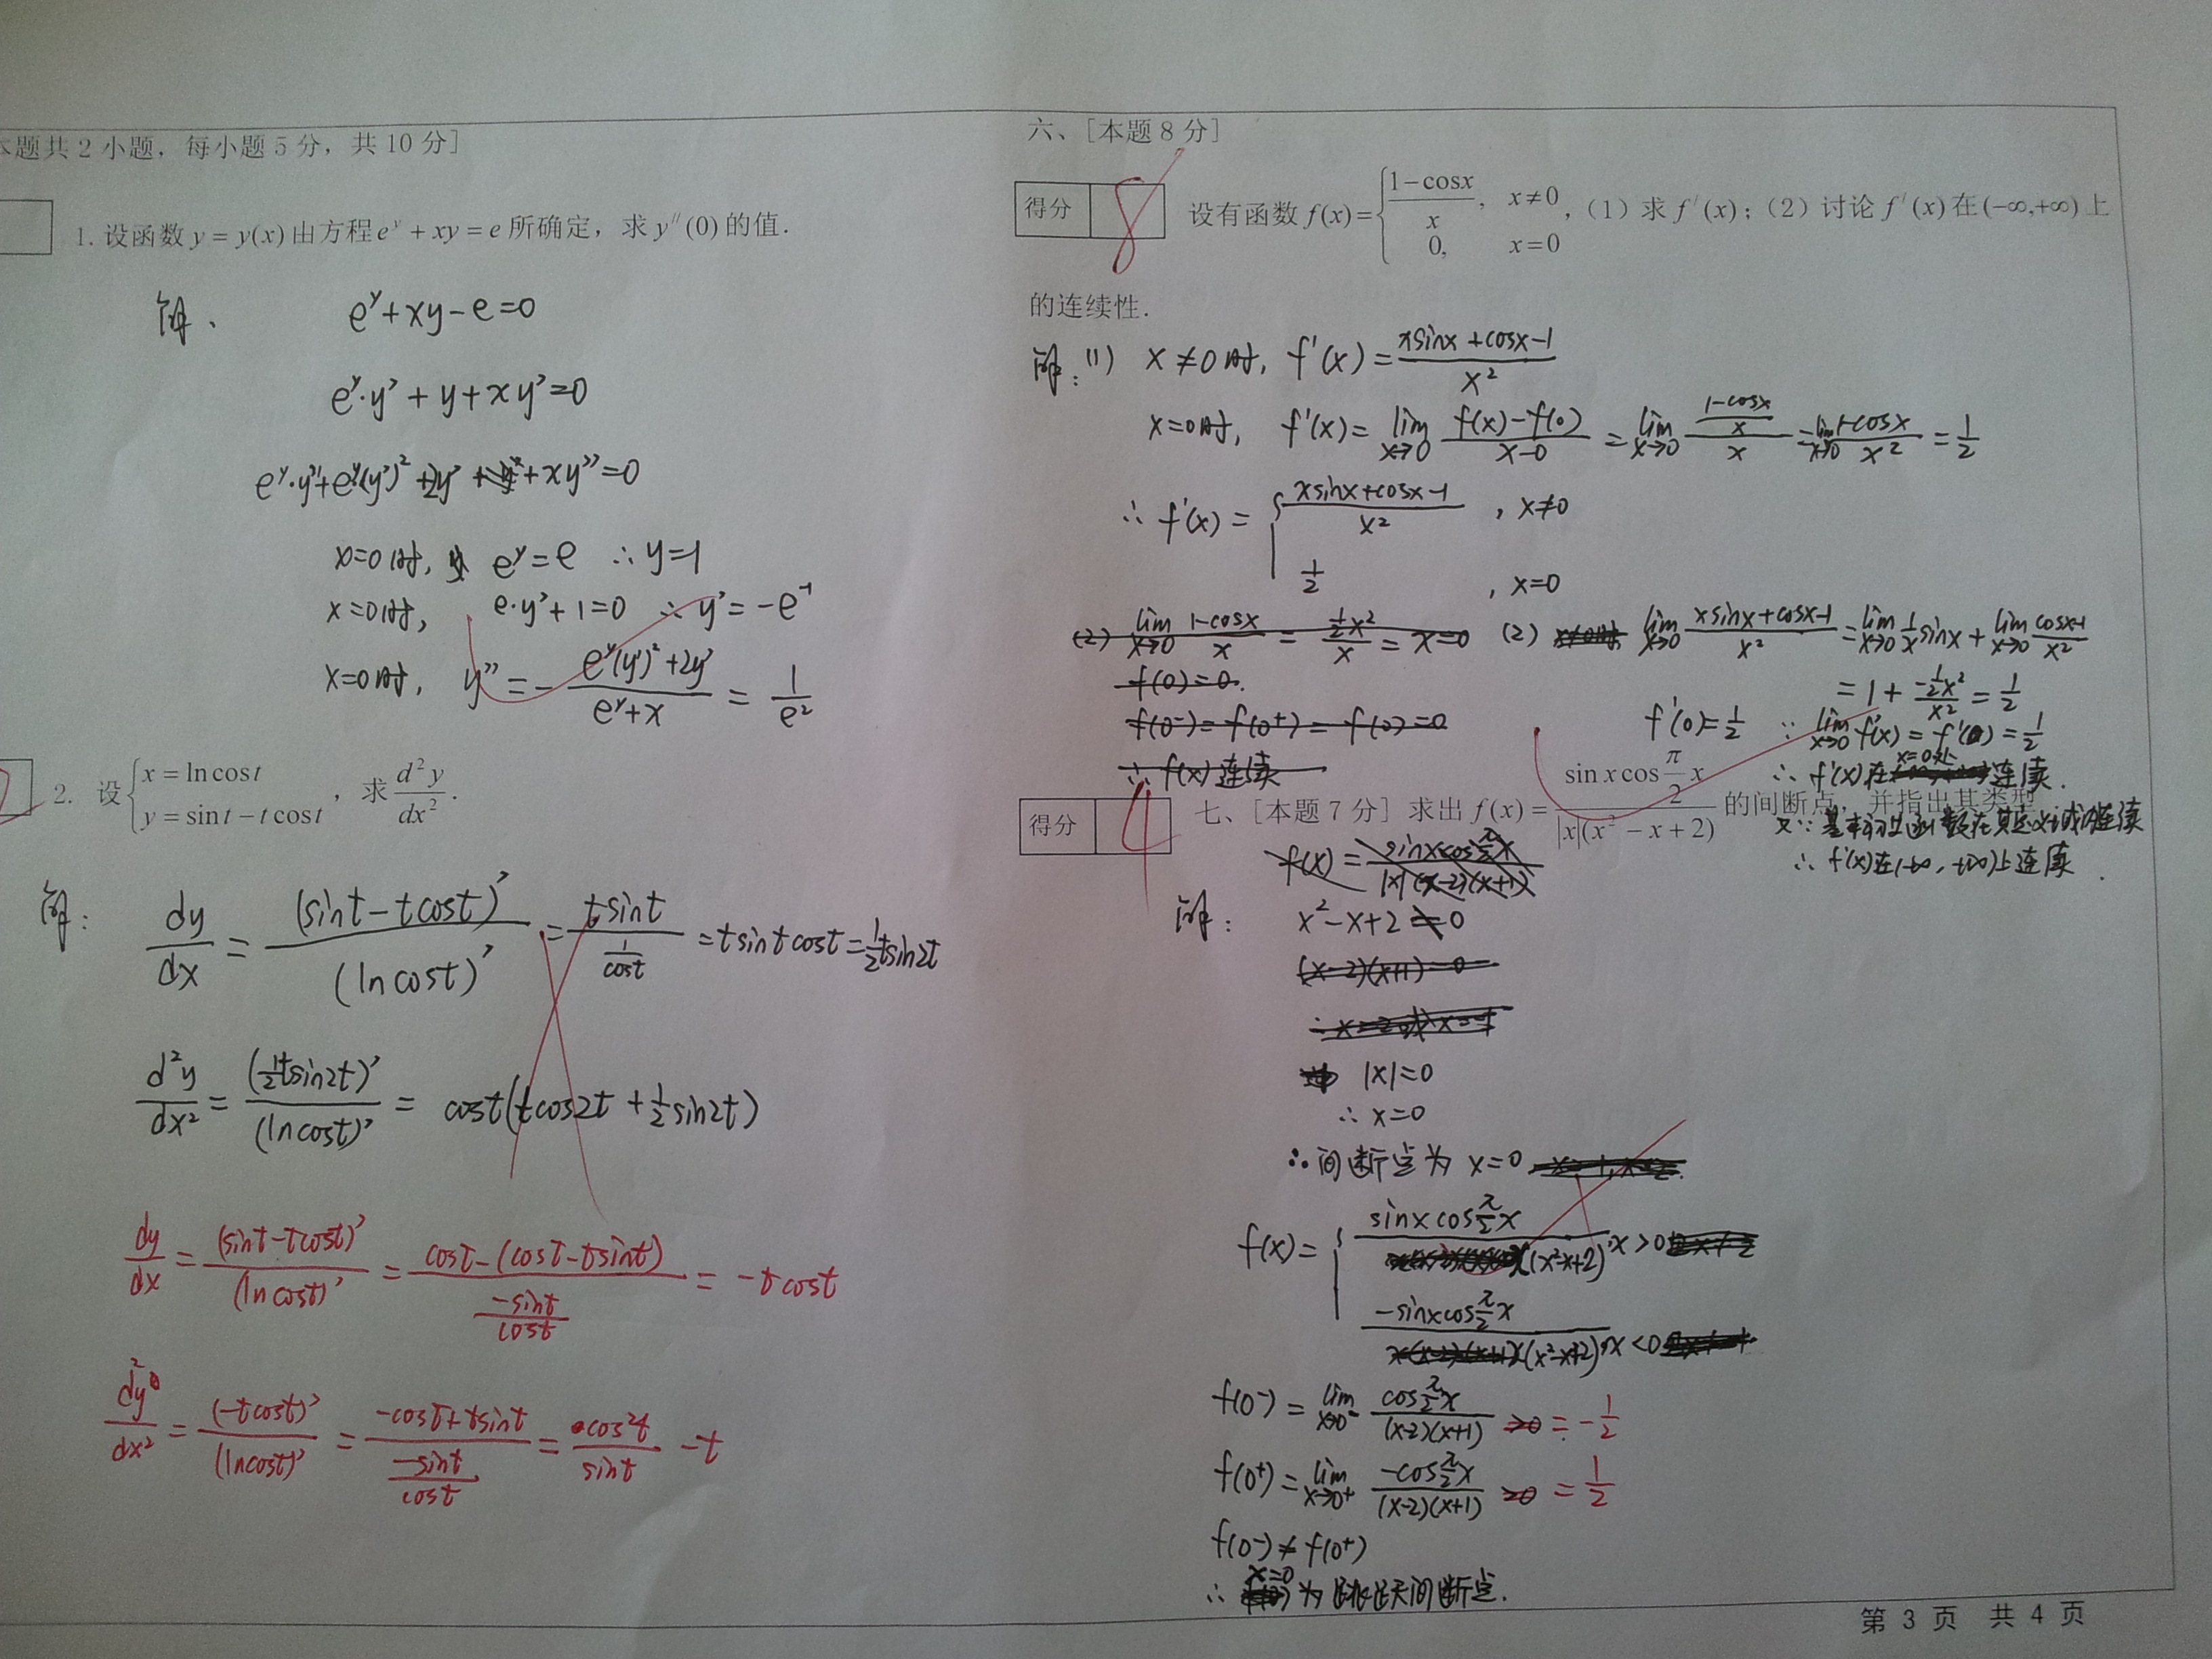 本题共2小题，每小题5分，共10分］
1. 设函数 y = y(x) 由方程 e^y + xy = e 所确定，求 y''(0) 的值.
解、 e^y+xy-e=0
e^y·y'+y+xy'=0
e^y·y''+e^y(y')²+2y'+xy''=0
x=0时, e^y=e ∴y=1
x=0时, e·y'+1=0 ∴y'=-e^-1
x=0时, y''=-(e^y(y')²+2y')/(e^y+x)=1/e²
2. 设{x = ln cos t
y = sin t - t cos t，求 d²y/dx².
解: dy/dx=(sint-tcost)'/(lncost)'=tsint/(1/cost)=tsintcost=1/2tsin2t
d²y/dx²=(1/2tsin2t)'/(lncost)'=cost(tcos2t+1/2sin2t)
dy/dx=(sint-tcost)'/(lncost)'=(cost-(cost-tsint))/(-sint/cost)=-tcost
d²y/dx²=(-tcost)'/(lncost)'=(-cost+tsint)/(-sint/cost)=cos²t/sint-t
六、［本题8分］
得分 8
设有函数 f(x)={(1-cosx)/x, x≠0
0, x=0，(1) 求 f'(x)；(2) 讨论 f'(x) 在 (-∞,+∞) 上
的连续性.
解: (1) x≠0时, f'(x)=(xsinx+cosx-1)/x²
x=0时, f'(x)=lim x→0 (f(x)-f(0))/(x-0)=lim x→0 ((1-cosx)/x)/x=lim x→0 (1-cosx)/x²=1/2
∴f'(x)={(xsinx+cosx-1)/x², x≠0
1/2, x=0
(2) lim x→0 (1-cosx)/x=(1/2x²)/x=x=0
f(0)=0.
f(0⁻)=f(0⁺)=f(0)=0
∴f(x)连续
(2) lim x→0 (xsinx+cosx-1)/x²=lim x→0 1/x sinx+lim x→0 (cosx-1)/x²
=1+(-1/2x²)/x²=1/2
f'(0)=1/2 ∵lim x→0 f'(x)=f'(0)=1/2
∴f'(x)在x=0处连续.
又∵基本初等函数在其定义域内连续
∴f'(x)在(-∞,+∞)上连续.
得分 4
七、［本题7分］求出 f(x)=(sin x cos π/2 x)/(|x|(x²-x+2)) 的间断点，并指出其类型
f(x)=(sinxcosπ/2x)/(|x|(x-2)(x+1))
解: x²-x+2≠0
(x-2)(x+1)=0
∴x=2或x=-1
|x|=0
∴x=0
∴间断点为x=0
f(x)={(sinxcosπ/2x)/(x(x²-x+2)), x>0
(-sinxcosπ/2x)/(x(x²-x+2)), x<0
f(0⁻)=lim x→0⁻ (cosπ/2x)/((x-2)(x+1))=-1/2
f(0⁺)=lim x→0⁺ (-cosπ/2x)/((x-2)(x+1))=1/2
f(0⁻)≠f(0⁺)
∴x=0为跳跃间断点.
第 3 页 共 4 页